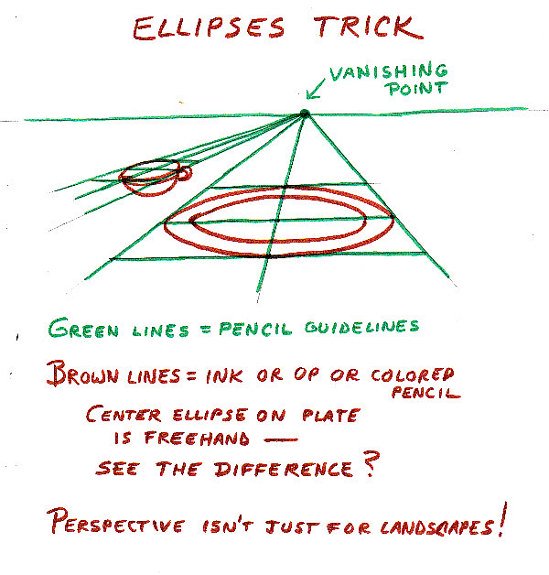 ELLIPSES TRICK
VANISHING
POINT
GREEN LINES = PENCIL GUIDELINES
BROWN LINES = INK OR OP OR COLORED
PENCIL
CENTER ELLIPSE ON PLATE
IS FREEHAND —
SEE THE DIFFERENCE?
PERSPECTIVE ISN'T JUST FOR LANDSCAPES!